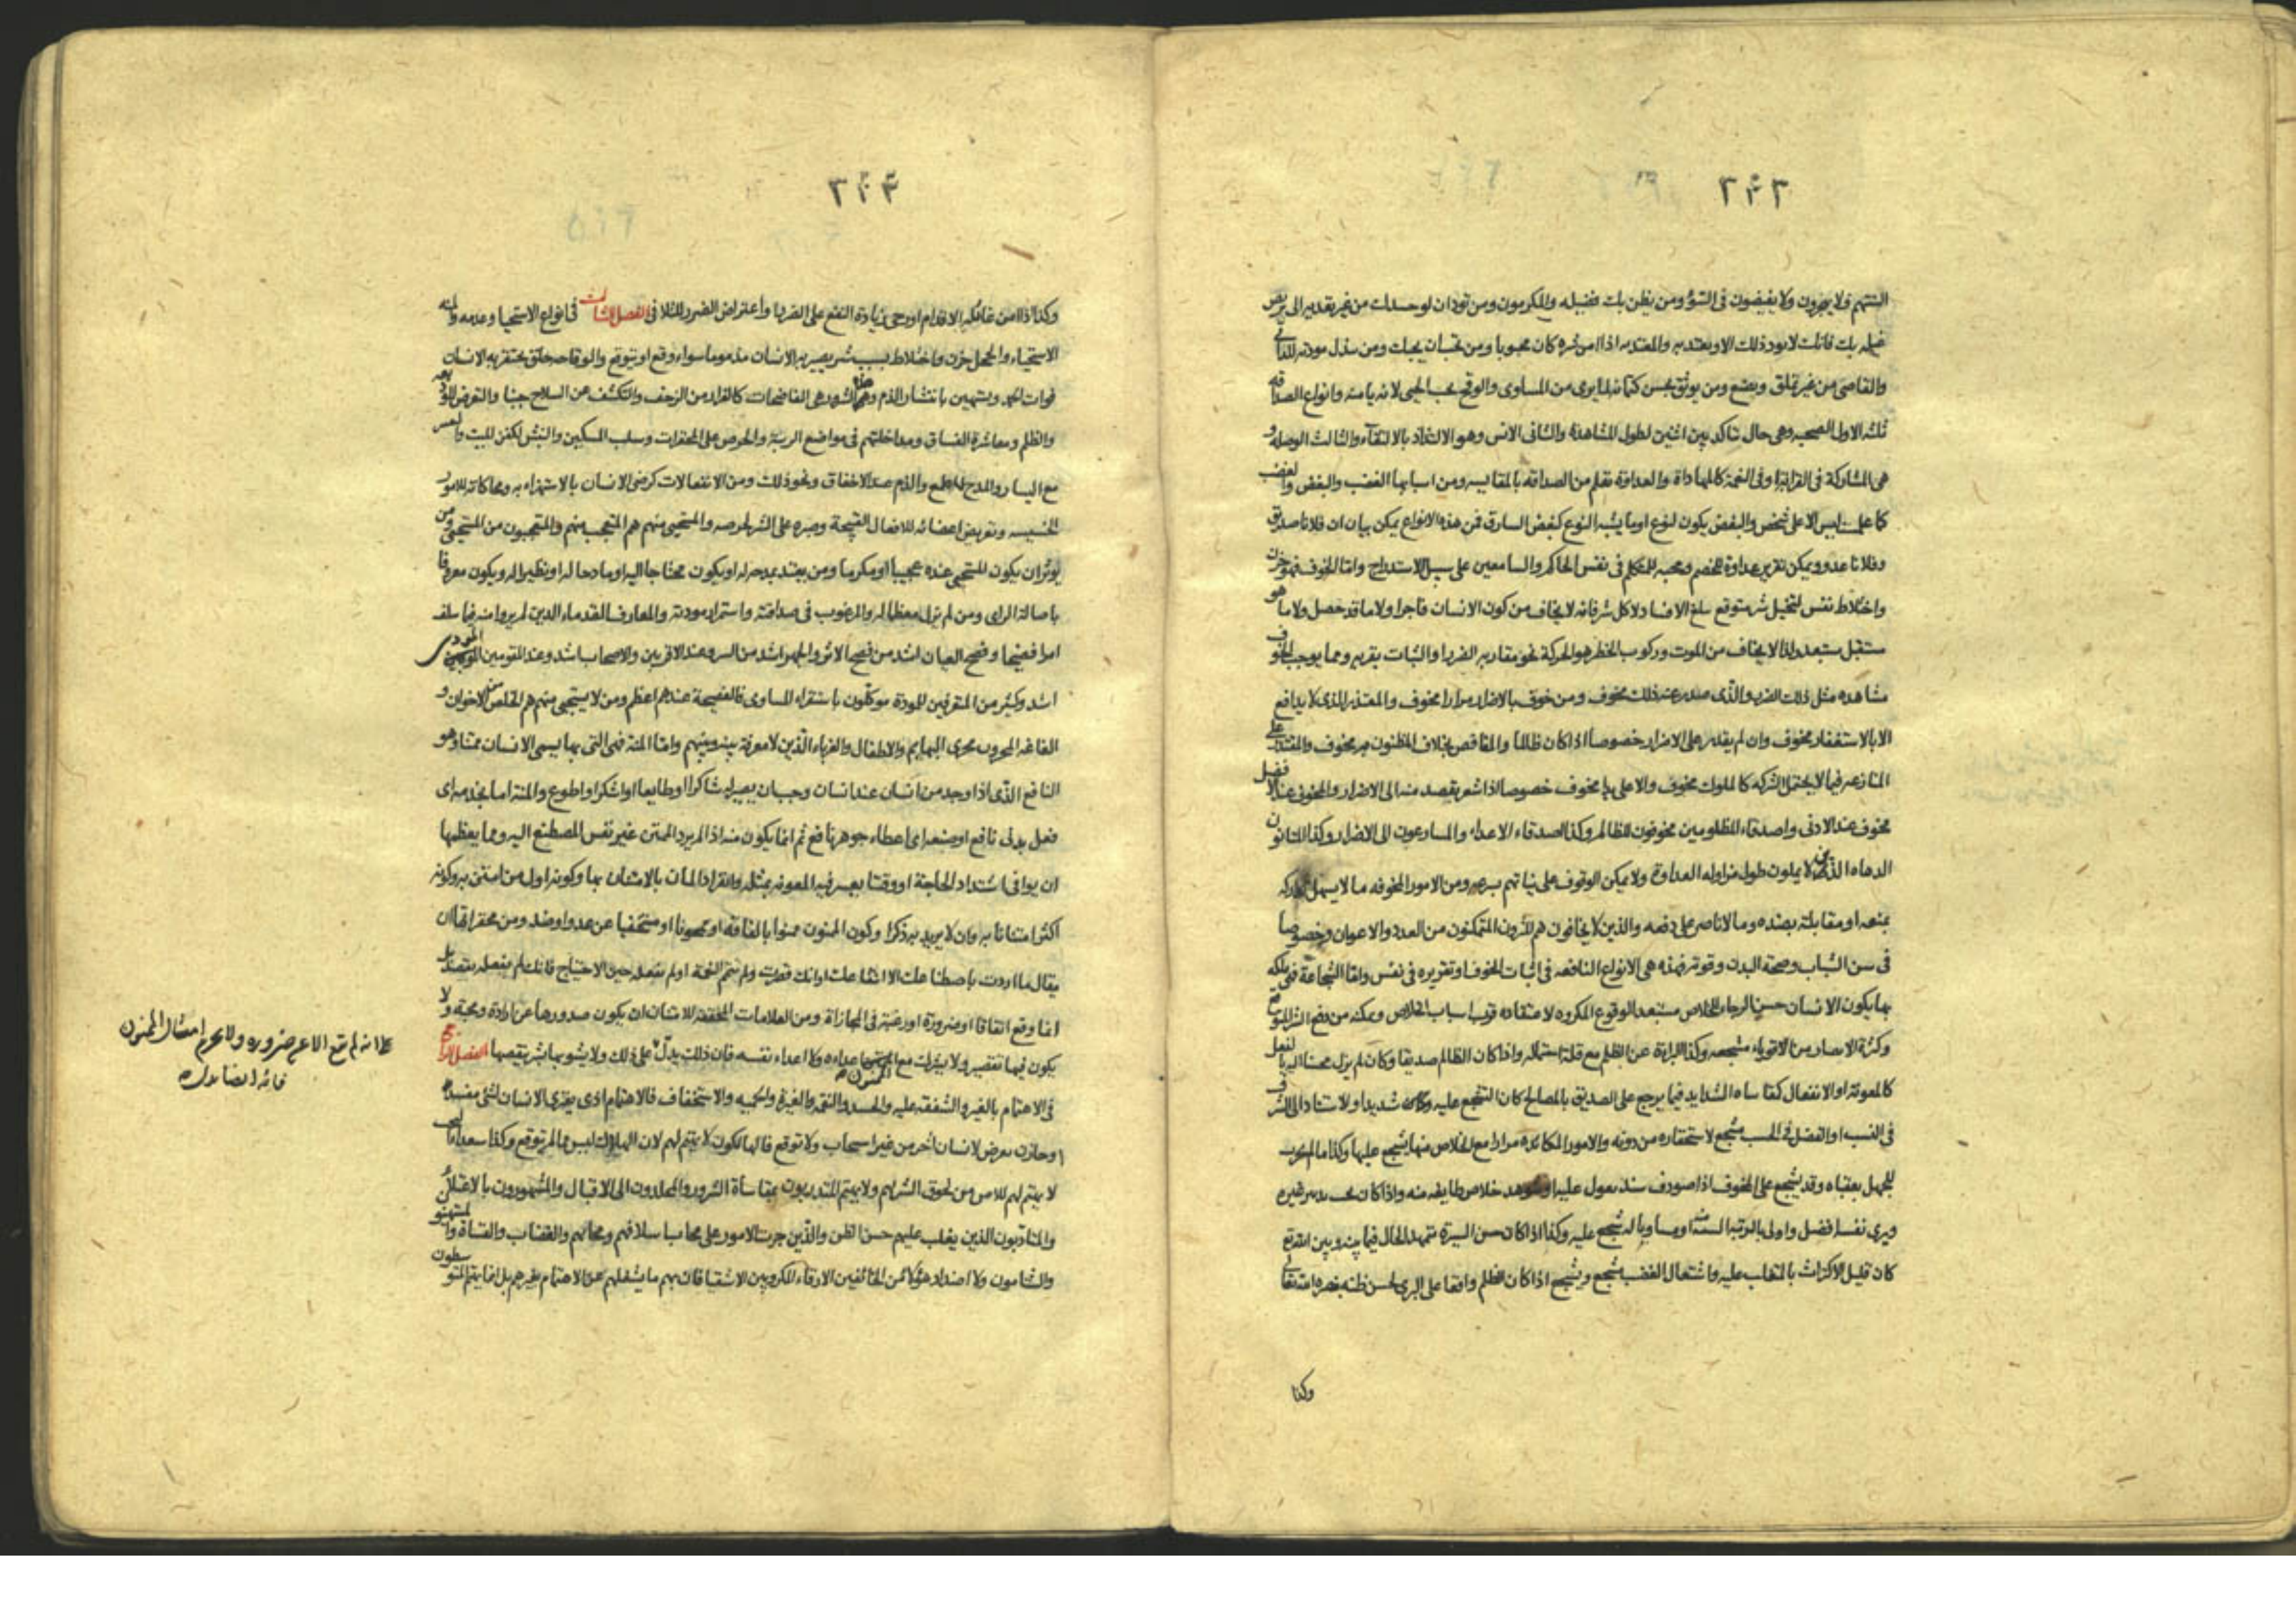 ٢٠٣
الشتهم فلا يجرون ولا يفيضون في السوء ومن يظن بك فضيله والمكرمون ومن تود ان لو حسدك من غير تقدير الى
فيك فانك لا تود ذلك الا وتعتد به والمعتد به اذا امن شره كان محبوبا ومن تحب ان يحبك ومن يبذل مودته للداني
والقاصي من غير تملق وتصنع ومن يوثق بحسن كتمانه لما يرى من المساوى والوقح يحب الحيي لانه يامنه وانواع الصداقه
ثلثه الاول الصحبه وهي حال تتاكد بين اثنين لطول المشاهدة والثاني الانس وهو الالتذاذ بالالتقاء والثالث الوصله و
هي المشاركة في القرابة او في النعمة كالمهاداة والعداوة تعلم من الصداقه بالمقايسه ومن اسبابها الغضب والبغض والغضب
كما علمت ليس الا على شخص والبغض يكون لنوع او ما يشبه النوع كبغض السارق فمن هذه الانواع يمكن بيان ان فلانا صديق
وفلانا عدو ويمكن تقرير عداوة للخصم ومحبه للمتكلم في نفس الحاكم والسامعين على سبيل الاستدراج واما الخوف فهو حزن
واختلاط نفس لتخيل شر متوقع يبلغ الافساد لا كل شر فانه لا يخاف من كون الانسان فاجرا ولا ما قد حصل ولا ما هو
مستقبل مستبعد لذا لا يخاف من الموت وركوب الخطر هو الحركة نحو مقاربه الضر او الثبات بقربه ومما يوجب الخوف
مشاهده مثل ذلك الضر والذي صدر عنه ذلك مخوف ومن خوف بالاضرار مرارا مخوف والمعتذر الذي لا يدافع
الا بالاستغفار مخوف وان لم يقدر على الاضرار خصوصا اذا كان ظالما والمناقص بخلاف المظنون به مخوف والمقتدر على
المنازعه فيما لا يحتمل الشركه كالملوك مخوف والاعلى يدا مخوف خصوصا اذا شعر بقصد منه الى الاضرار والمخوف عند الافضل
مخوف عند الادنى واصدقاء المظلومين مخوفون للظالم وكذا اصدقاء الاعداء والمسارعون الى الاضرار وكذا المتانون
الدهاه الذين لا يملون طول مزاوله العداوة ولا يمكن الوقوف على نياتهم بسرعه ومن الامور المخوفه ما لا يسهل تداركه
بمنعه او مقابلته بضده وما لا ناصر على دفعه والذين لا يخافون هم المثرون المتمكنون من العدد والاعوان وخصوصا
في سن الشباب وصحة البدن وقوته فهذه هي الانواع النافعه في اثبات الخوف او تقريره في نفس واما الشجاعة فهي ملكه
بها يكون الانسان حسن الرجاء للخلاص مستبعد الوقوع المكروه لاعتقاده قرب اسباب الخلاص وتمكنه من دفع الشر المتوقع
وكثرة الانصار من الاقوياء مشجعه وكذا البراءة عن الظلم مع قلة احتماله واذا كان الظالم صديقا وكان لم يزل محسنا اليه بالفعل
كالمعونة او الانفعال كمقاساه الشدايد فيما يرجع على الصديق بالمصالح كان التشجع عليه شديدا والاستناد الى الشرف
في النسب او الفضل في الحسب مشجع لاستحقاره من دونه والامور المكابده مرارا مع الخلاص منها يشجع عليها وكذا ما لم يجرب
للجهل بعقباه وقد يشجع على المخوف اذا صودف سند يعول عليه او شوهد خلاص طايفه منه واذا كان تحت يده غيره
ويرى نفسه افضل واولى بالرتبه او مساويا له تشجع عليه وكذا اذا كان حسن السيرة متمهد الحال فيما بينه وبين الله تع
كان قليل الاكتراث بالمتغلب عليه واشتعال الغضب مشجع ويشجع اذا كان الظلم واقعا على البرى لحسن ظنه بنصره الله تعالى
وكذا
٢٠٤
وكذا اذا امن غائله الاقدام او رجى زيادة النفع على الضر او اعتراض الضرر للتلافى الفصل الثالث في انواع الاستحيا وعدمه والمنه
الاستحياء والخجل حزن واختلاط بسبب شر يصير به الانسان مذموما سواء وقع او يتوقع والوقاحه خلق يحتقر به الانسان
فوات الحمد ويستهين بانتشار الذم وهذه الشرور هي الفاضحات كالفرار من الزحف والتكشف عن السلاح جبنا والتعرض للوديعه
والظلم ومعاشرة الفساق ومداخلتهم في مواضع الريبة والحرص على المحقرات وسلب المسكين والنبش لكفن الميت والعسر
مع اليسار والمدح للطمع والذم عند الاخفاق ونحو ذلك ومن الانفعالات كرضى الانسان بالاستهزاء به ومحاكاته للامور
الخسيسه وتعريض اعضائه للافعال القبيحة وصبره على الشر لحرصه والمستحيى منهم هم المتعجب منهم والمتعجبون من المستحيى ومن
يوثر ان يكون المستحيي عنده عجيبا او مكرما ومن يعتد بمدحه له او يكون محتاجا اليه او مادحا له او نظيرا له ويكون معروفا
باصالة الراى ومن لم يزل معظما له والمرغوب في صداقته واستمرار مودته والمعارف القدماء الذين لم يروا منه فيما سلف
امرا فضيحا وفضح العيان اشد من فضح الاثر والجهر اشد من السر وعند الاقربين والاصحاب اشد وعند المتوسمين المودى
اشد وكثير من المتقربين للمودة موكلون باستقراء المساوى فالفضيحة عندهم اعظم ومن لا يستحيى منهم هم الخلص من الاخوان و
الفاغه المجرون مجرى البهايم والاطفال والغرباء الذين لا معرفة بينه وبينهم واما المنة فهي التي بها يسمى الانسان ممتنا وهو
النافع الذي اذا وجد من انسان عند انسان وجب ان يصير له شاكرا او طايعا او اشكر او اطوع والمنة اما بخدمه اى
فعل بدنى نافع او صنعه اى اعطاء جوهر نافع ثم انما يكون منه اذا لم يرد الممتن غير نفس المصطنع اليه ومما يعظمها
ان يوافى اشتداد الحاجة او وقتا يعسر فيه المعونه بمثله وانفراد المان بالامتنان بها وكونه اول من امتن به وكونه
اكثر امتنانا به وان لا يريد به ذكرا وكون الممنون ممنوا بالفاقه او مجهودا او متخفيا عن عدو او ضد ومن محقراتها ان
يقال ما اردت باصطناعك الا انتفاعك او انك قصرت ولم تتم النعمة او لم تفعله حين الاحتياج فانك لم تفعله بقصد بل
انما وقع اتفاقا او ضرورة او رغبة في المجازاة ومن العلامات المحققه للامتنان ان يكون صدورها عن ارادة ومحبه ولا
يكون فيها تقصير ولا يشرك مع الممنون عليه اعداءه ولا اعداء نفسه فان ذلك يدل على ذلك ولا يشوبها بشر ينقصها الفصل الرابع
في الاهتمام بالغير والشفقه عليه والحسد والنقمه والغيرة والحميه والاستخفاف فالاهتمام اذى يعترى الانسان لشئ مفسد
او حازن يعرض لانسان اخر من غير استيجاب ولا توقع فالهالكون لا يهتم لهم لان الهلاك ليس مما لم يتوقع وكذا سعداء البخت
لا يهتم لهم للامن من لحوق الشر لهم ولا يهتم المتدربون بمقاساة الشرور والمخلدون الى الاقبال والمشهورون بالاعتلاء
والمتادبون الذين يغلب عليهم حسن الظن والذين جرت الامور على محاب اسلافهم ومحابهم والغضاب والقساة والمستهزو
والشامتون ولا اضداد هؤلاء من الخائفين الارقاء المكروبين الاشقيا فان بهم ما يشغلهم عن الاهتمام بغيرهم بل انما يهتم المتوسطون
انه لم يقع الا عن ضروره ولا يحرم امتنان الممنون
فانه ايضا يدل